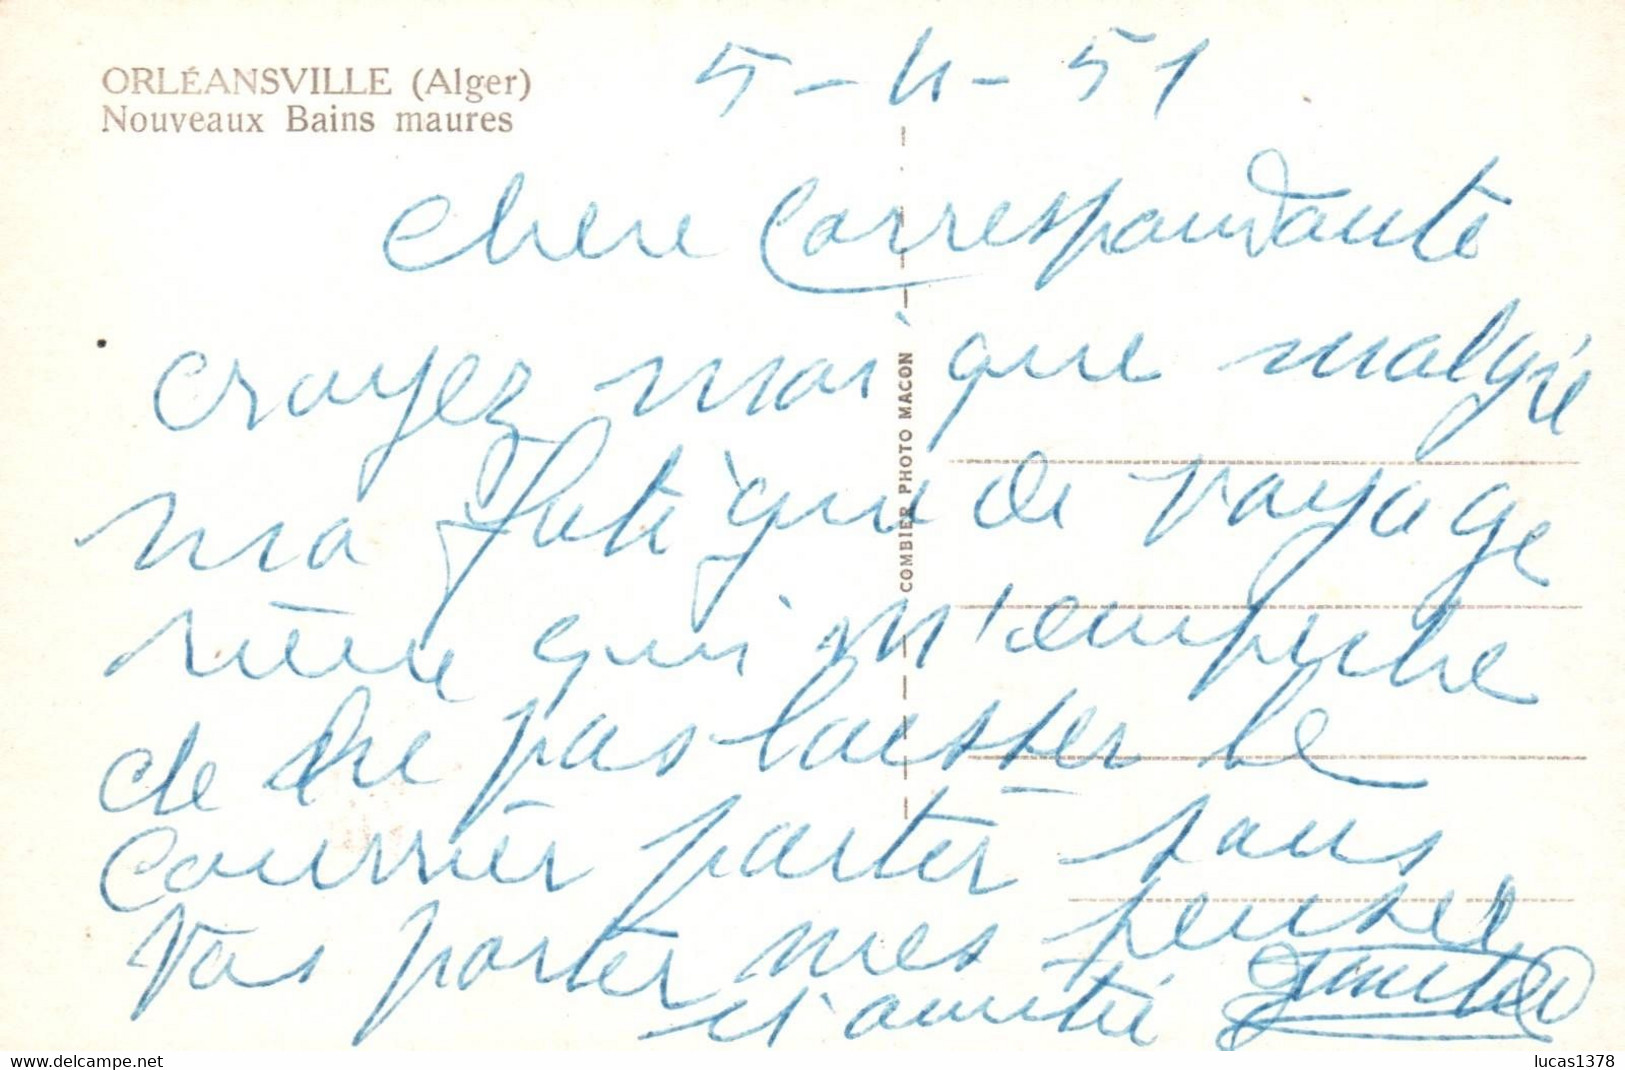 ORLÉANSVILLE (Alger)
Nouveaux Bains maures
5-4-51
Chere Correspondante
croyez moi que malgré
ma fatigue de voyage
qui m'empeche
de ne pas laisser le
Courrier partir sans
vas porter mes pensee
d'amitié
COMBIER PHOTO MACON
lucas1378